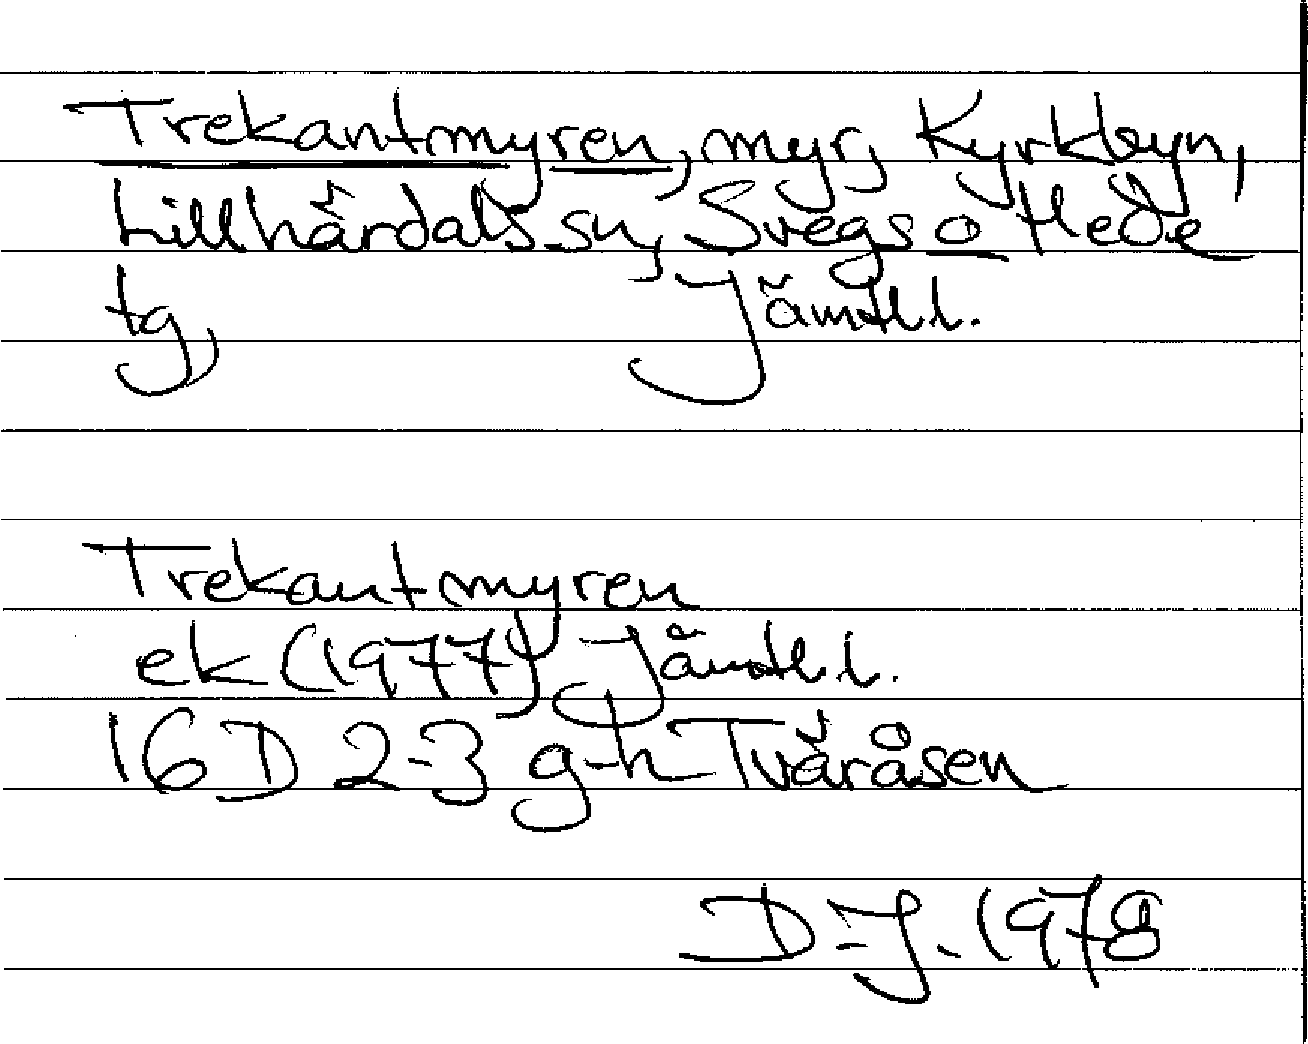 Trekantmyren, myr, Kyrkbyn,
Lillhärdals sn, Svegs o Hede
tg, Jämtl. l.
Trekantmyren
ek (1977) Jämtl. l.
16D 2-3 g-h Tväråsen
D-J. 1978